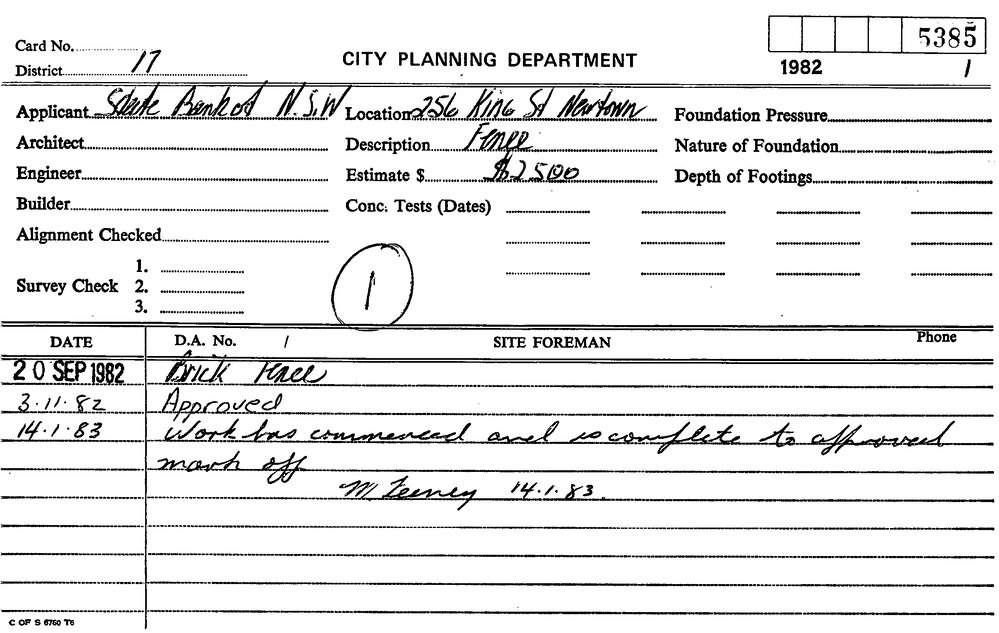 5385
Card No.
District 17
CITY PLANNING DEPARTMENT
1982 /
Applicant State Bank of N.S.W Location 256 King St Newtown Foundation Pressure
Architect Description Fence Nature of Foundation
Engineer Estimate $ $2500 Depth of Footings
Builder Conc. Tests (Dates)
Alignment Checked
1.
Survey Check 2.
3.
1
DATE D.A. No. / SITE FOREMAN Phone
20 SEP 1982 Brick Fence
3.11.82 Approved
14.1.83 Work has commenced and is complete to approved
mark off
M Feeney 14.1.83.
C OF S 6760 T6